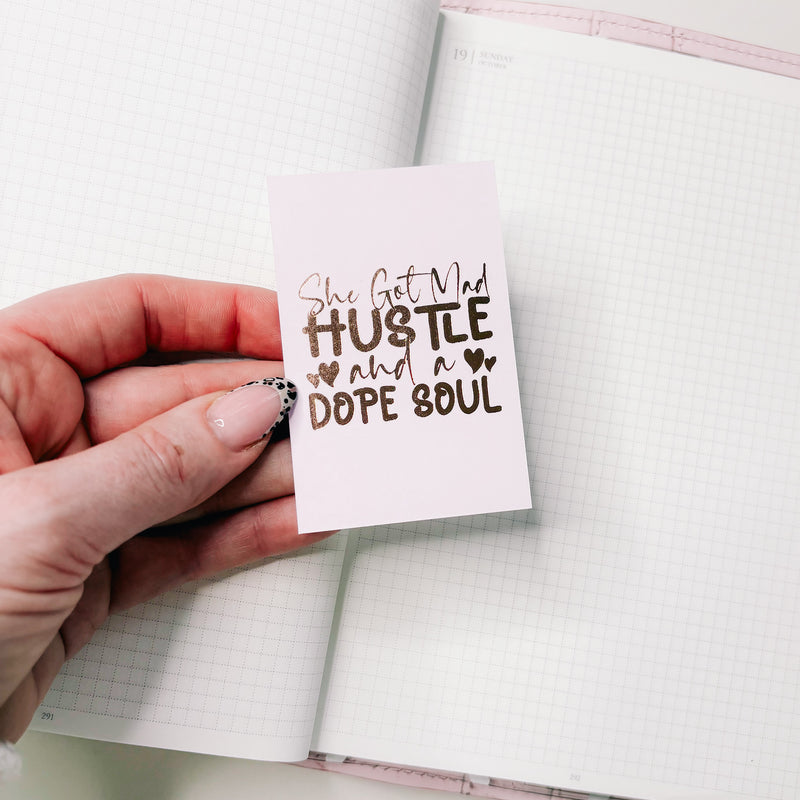 19 SUNDAY
OCTOBER
She Got Mad
HUSTLE
and a
DOPE SOUL
291
292